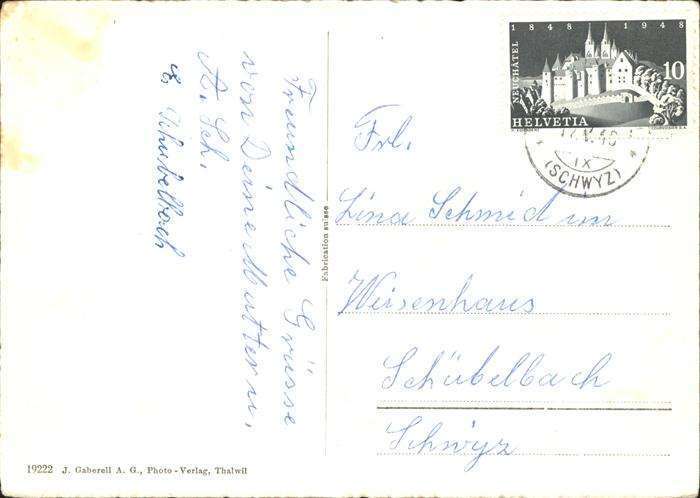 Freundliche Grüsse
von Deine Muttern,
A. Sch.
Schubelbach
Fabrication suisse
1848 1948
NEUCHÂTEL
10
HELVETIA
IX
(SCHWYZ)
Frl.
Lina Schmid im
Weisenhaus
Schübelbach
Schwyz
19222 J. Gaberell A. G., Photo-Verlag, Thalwil